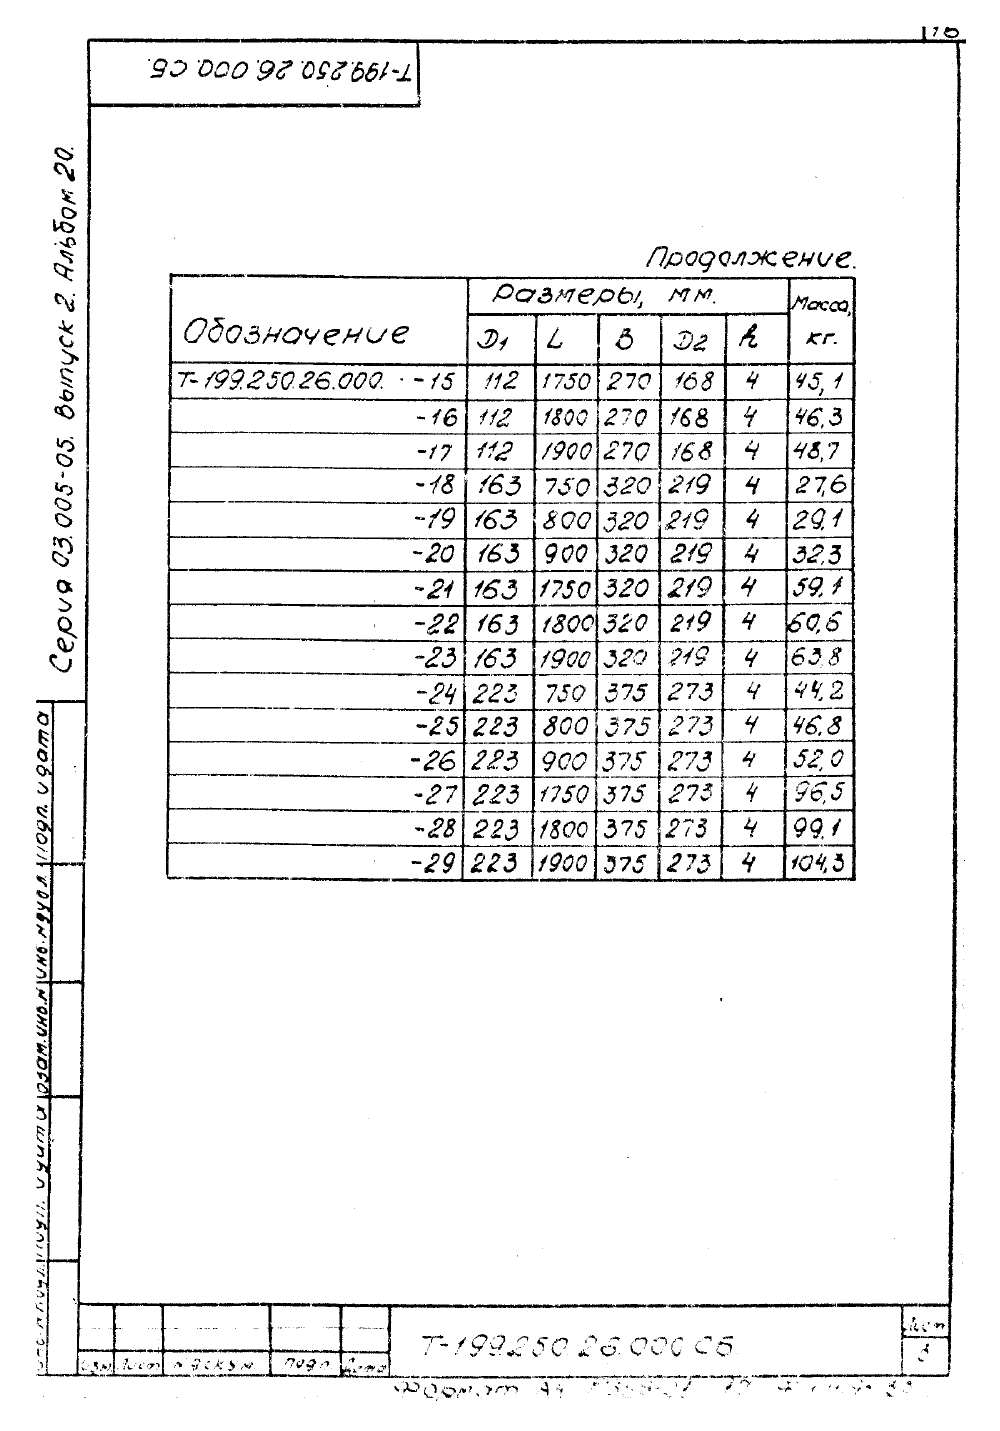 Т-199.250.26.000.СБ.
Серия 03.005-05. Выпуск 2. Альбом 20.
Продолжение.
Обозначение Размеры, мм. Масса, кг.
D1 L B D2 h
Т-199.250.26.000. -15 112 1750 270 168 4 45,1
-16 112 1800 270 168 4 46,3
-17 112 1900 270 168 4 48,7
-18 163 750 320 219 4 27,6
-19 163 800 320 219 4 29,1
-20 163 900 320 219 4 32,3
-21 163 1750 320 219 4 59,1
-22 163 1800 320 219 4 60,6
-23 163 1900 320 219 4 63,8
-24 223 750 375 273 4 44,2
-25 223 800 375 273 4 46,8
-26 223 900 375 273 4 52,0
-27 223 1750 375 273 4 96,5
-28 223 1800 375 273 4 99,1
-29 223 1900 375 273 4 104,3
Подп. и дата
Инв. № дубл.
Взам. инв. №
Подп. и дата
Изм. Лист № докум. Подп. Дата
Т-199.250.26.000 СБ
Лист
3
Формат А4